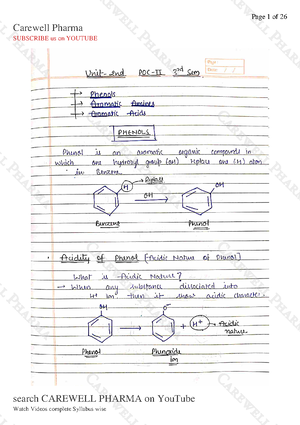 Page 1 of 26
Carewell Pharma
SUBSCRIBE us on YOUTUBE
Unit-2nd POC-II 3rd Sem
Phenols
Aromatic Amines
Aromatic Acids
PHENOLS
Phenol is an aromatic organic compounds in
which one hydroxyl group (OH) replace one (H) atom
in Benzene.
H
Replace
OH
OH
Benzene
Phenol
Acidity of Phenol (Acidic Nature of Phenol)
What is Acidic Nature?
→ When any substance dissociated into
H+ ion then it show acidic character.
OH
O-
+ H+ → Acidic
nature
Phenol
Phenoxide
Ion
search CAREWELL PHARMA on YouTube
Watch Videos complete Syllabus wise
CAREWELL PHARMA